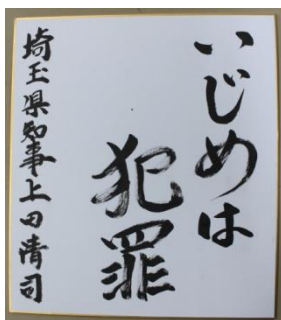 いじめは
犯罪
埼玉県知事上田清司